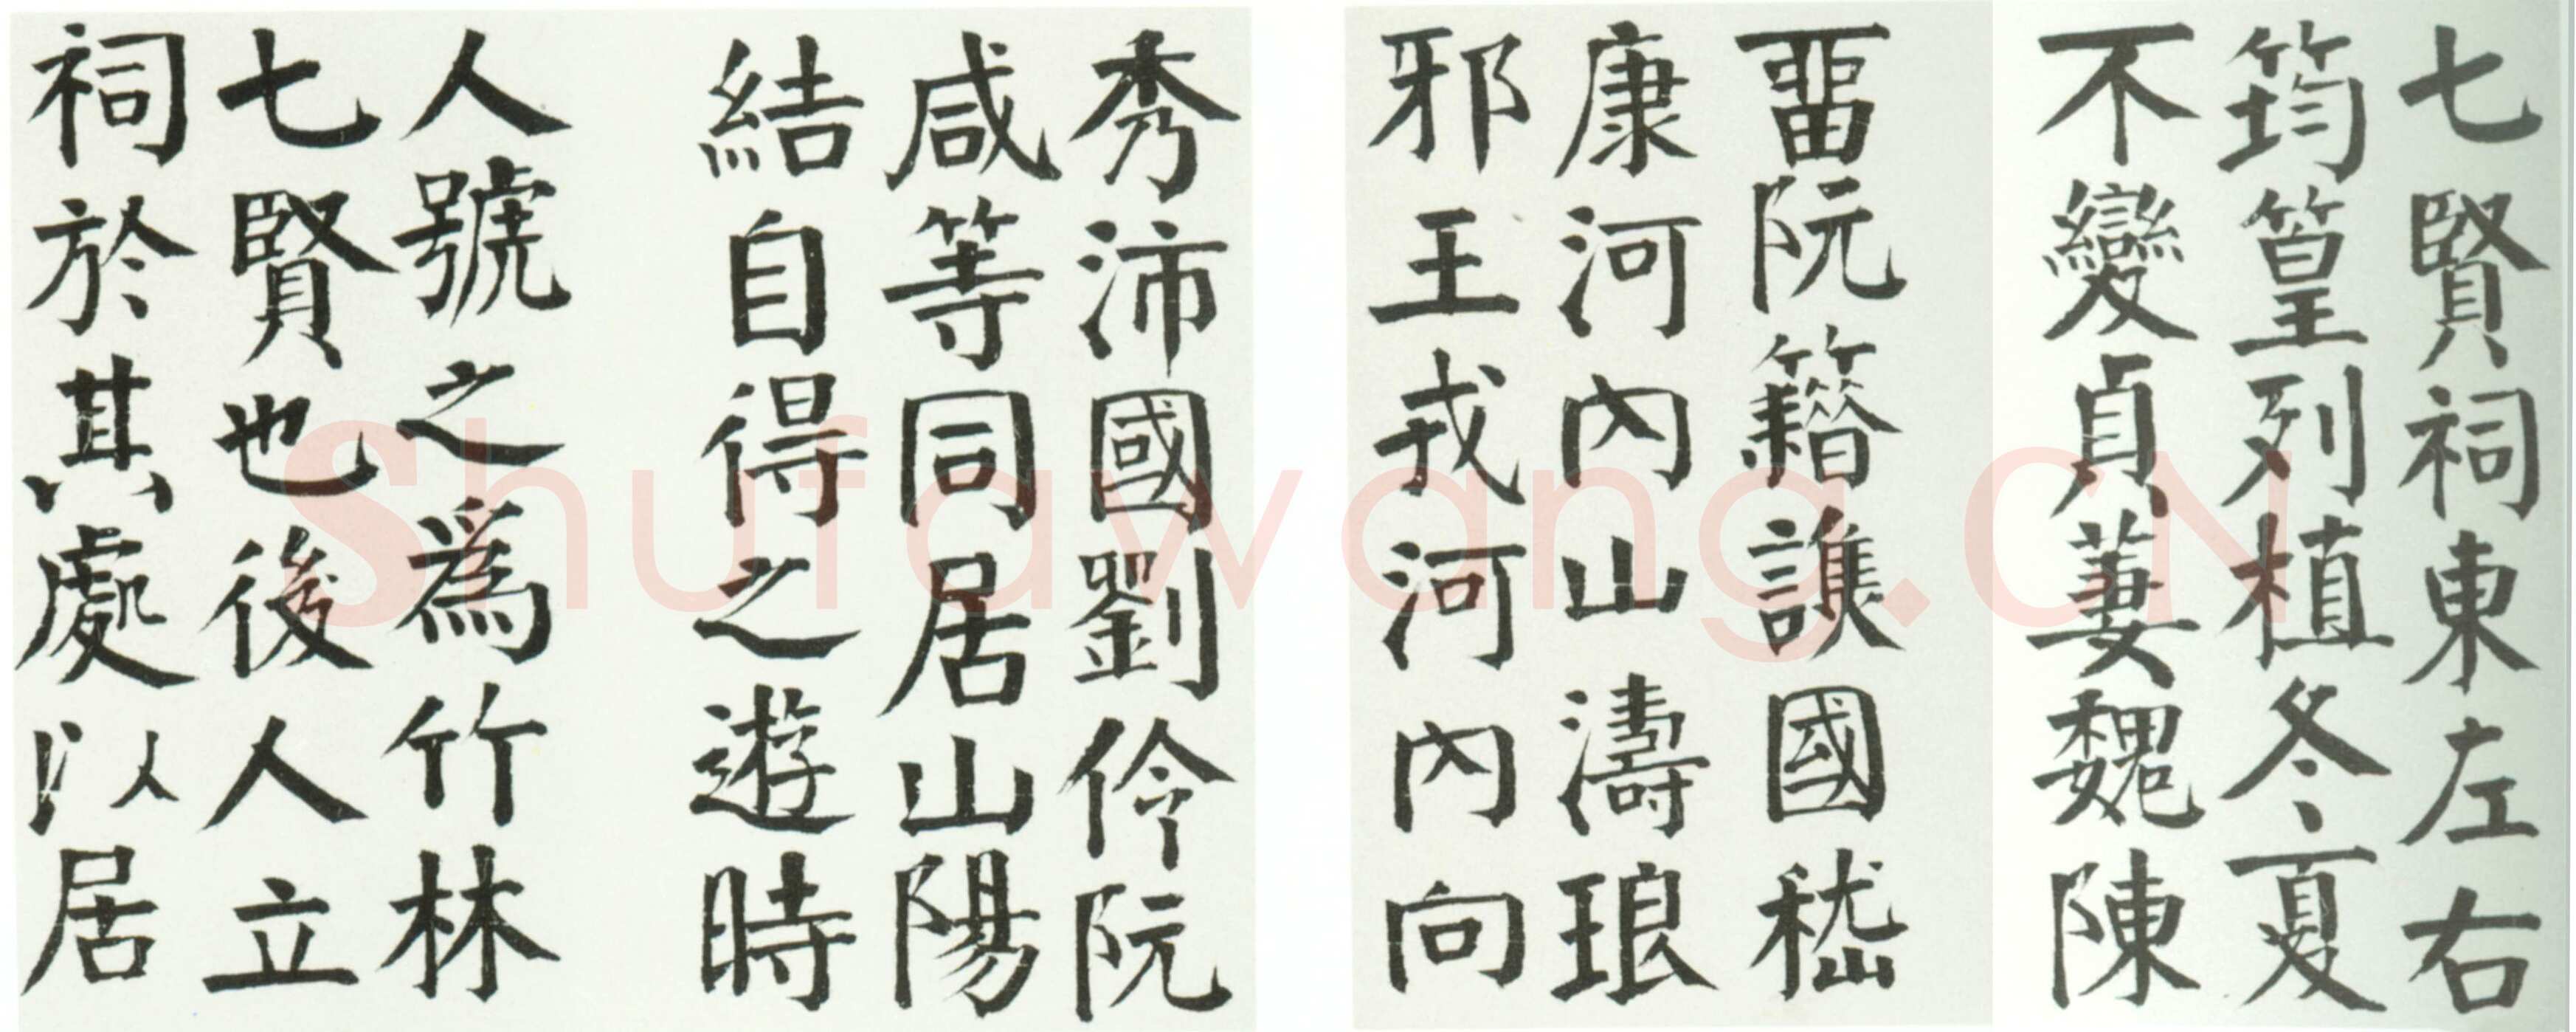 七賢祠東左右
筠篁列植冬夏
不變貞萋魏陳
畱阮籍譙國嵇
康河內山濤琅
邪王戎河內向
秀沛國劉伶阮
咸等同居山陽
結自得之遊時
人號之爲竹林
七賢也後人立
祠於其處以居
Shufawang.CN